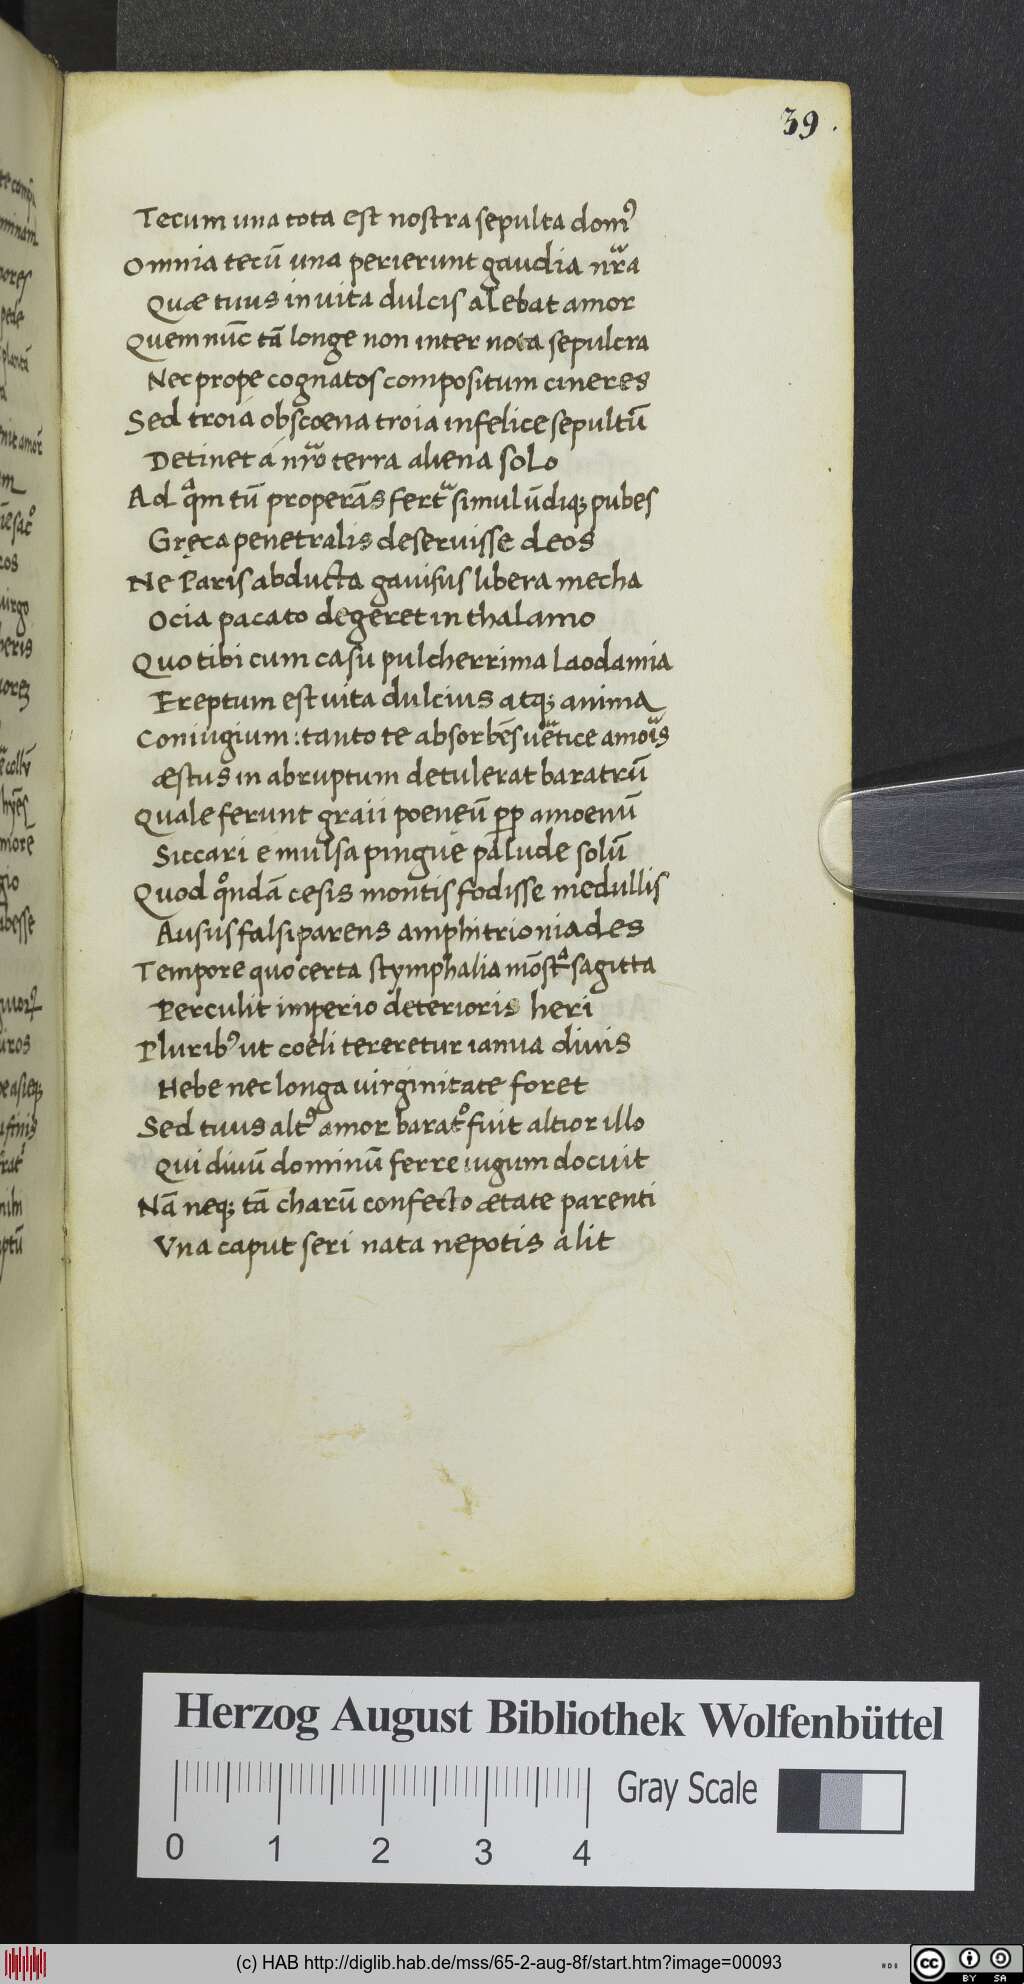 39.
Tecum una tota est nostra sepulta domꝰ
Omnia tecū una perierunt gaudia nr̃a
Quæ tuus in uita dulcis alebat amor
Quem nūc tā longe non inter nota sepulcra
Nec prope cognatos compositum cineres
Sed troia obscoena troia infelice sepultū
Detinet á nr̃o terra aliena solo
Ad qͣm tū properās fertͣ simul ūdiq; pubes
Gręca penetralis deseruisse deos
Ne Paris abducta gauisus libera mecha
Ocia pacato degeret in thalamo
Quo tibi cum casu pulcherrima laodamia
Ereptum est uita dulcius atq; anima
Coniugium: tanto te absorbēs uētice amoīs
æstus in abruptum detulerat baratrū
Quale ferunt graii poeneū ꝓp amoenū
Siccari e mulsa pingue palude solū
Quod qͦndā cesis montis fodisse medullis
Ausus falsiparens amphitrioniades
Tempore quo certa stymphalia mōstͣ sagitta
Perculit imperio deterioris heri
Pluribꝰ ut coeli tereretur ianua diuis
Hebe nec longa uirginitate foret
Sed tuus altꝰ amor baratͦ fuit altior illo
Qui diuū dominū ferre iugum docuit
Nā neq; tā charū confecto ætate parenti
Vna caput seri nata nepotis alit
Herzog August Bibliothek Wolfenbüttel
Gray Scale
0 1 2 3 4
(c) HAB http://diglib.hab.de/mss/65-2-aug-8f/start.htm?image=00093
cc BY SA